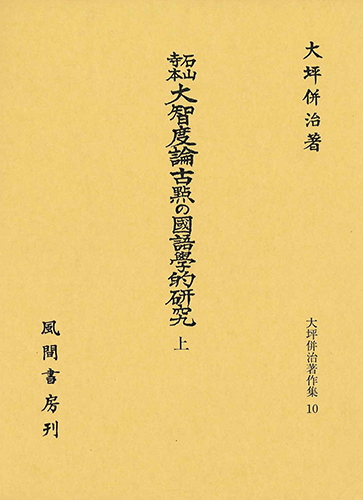 大坪併治著
石山寺本大智度論古點の國語學的研究 上
大坪併治著作集 10
風間書房刊